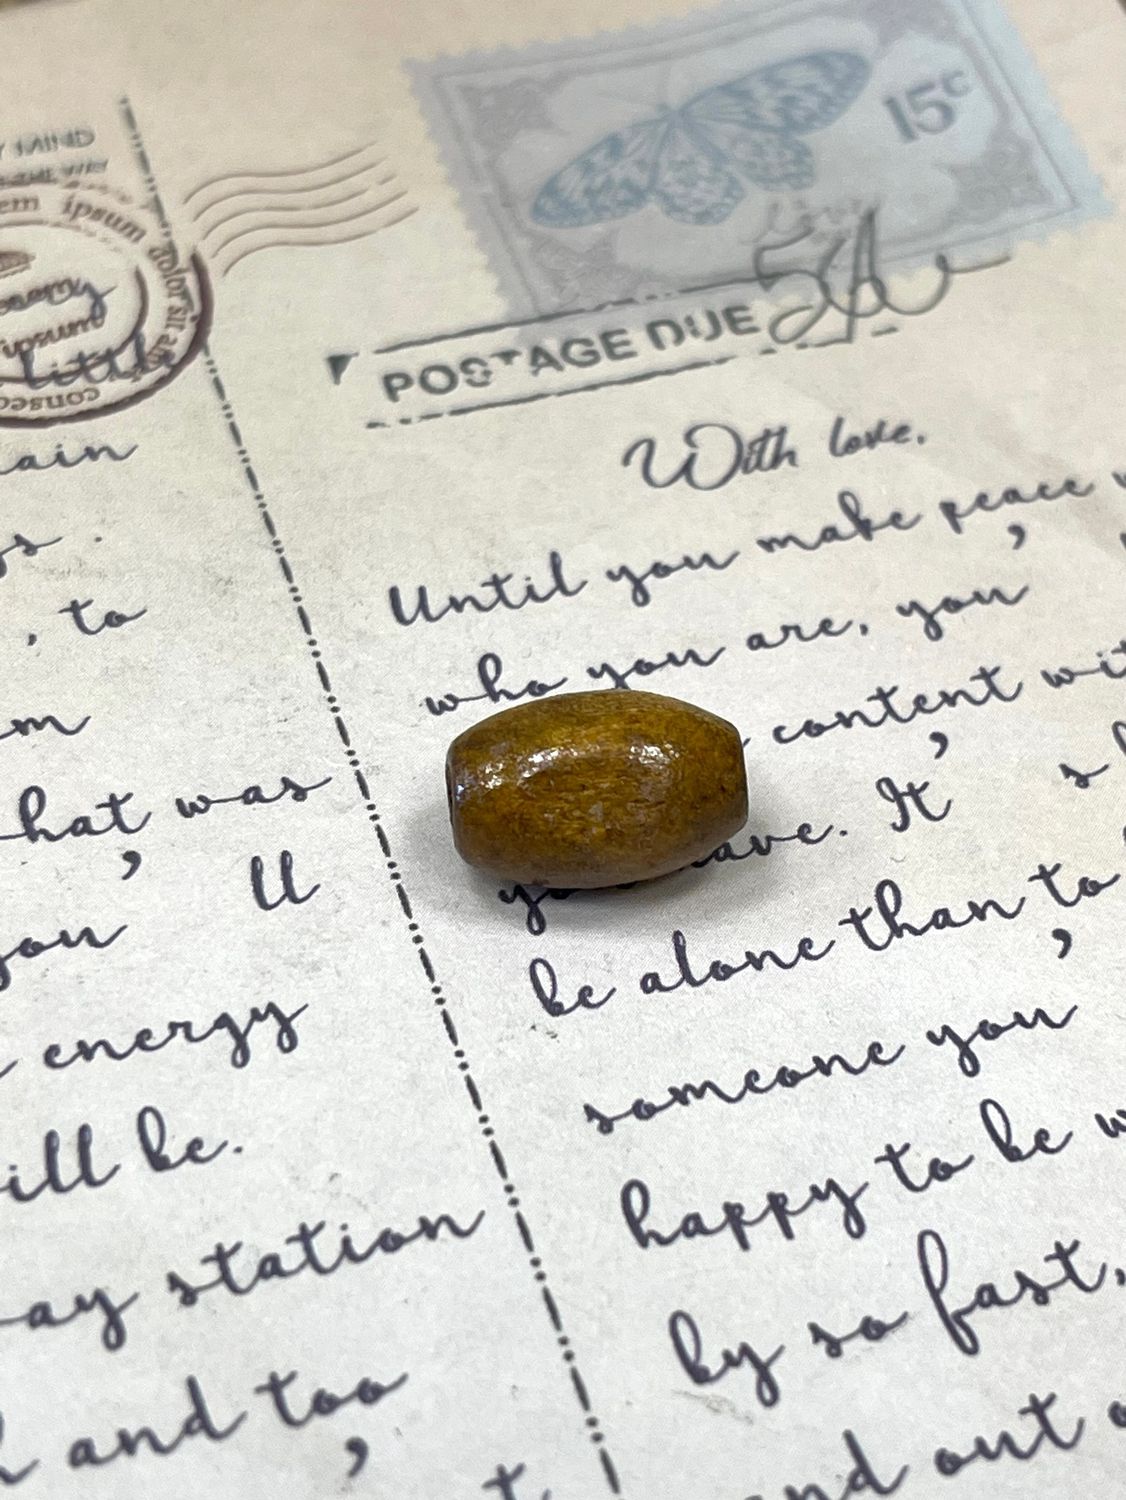 Y MIND
THE WAY
em ipsum dolor sit a
ipsum
little
consec
15c
POSTAGE DUE
ain
gs .
, to
m
hat was
you ' ll
energy
ill be.
ay station
and too
'
t
With love,
Until you make peace w
who you are, you '
content wit
you have. It ' s b
be alone than to
someone you '
happy to be w
by so fast,
nd out o